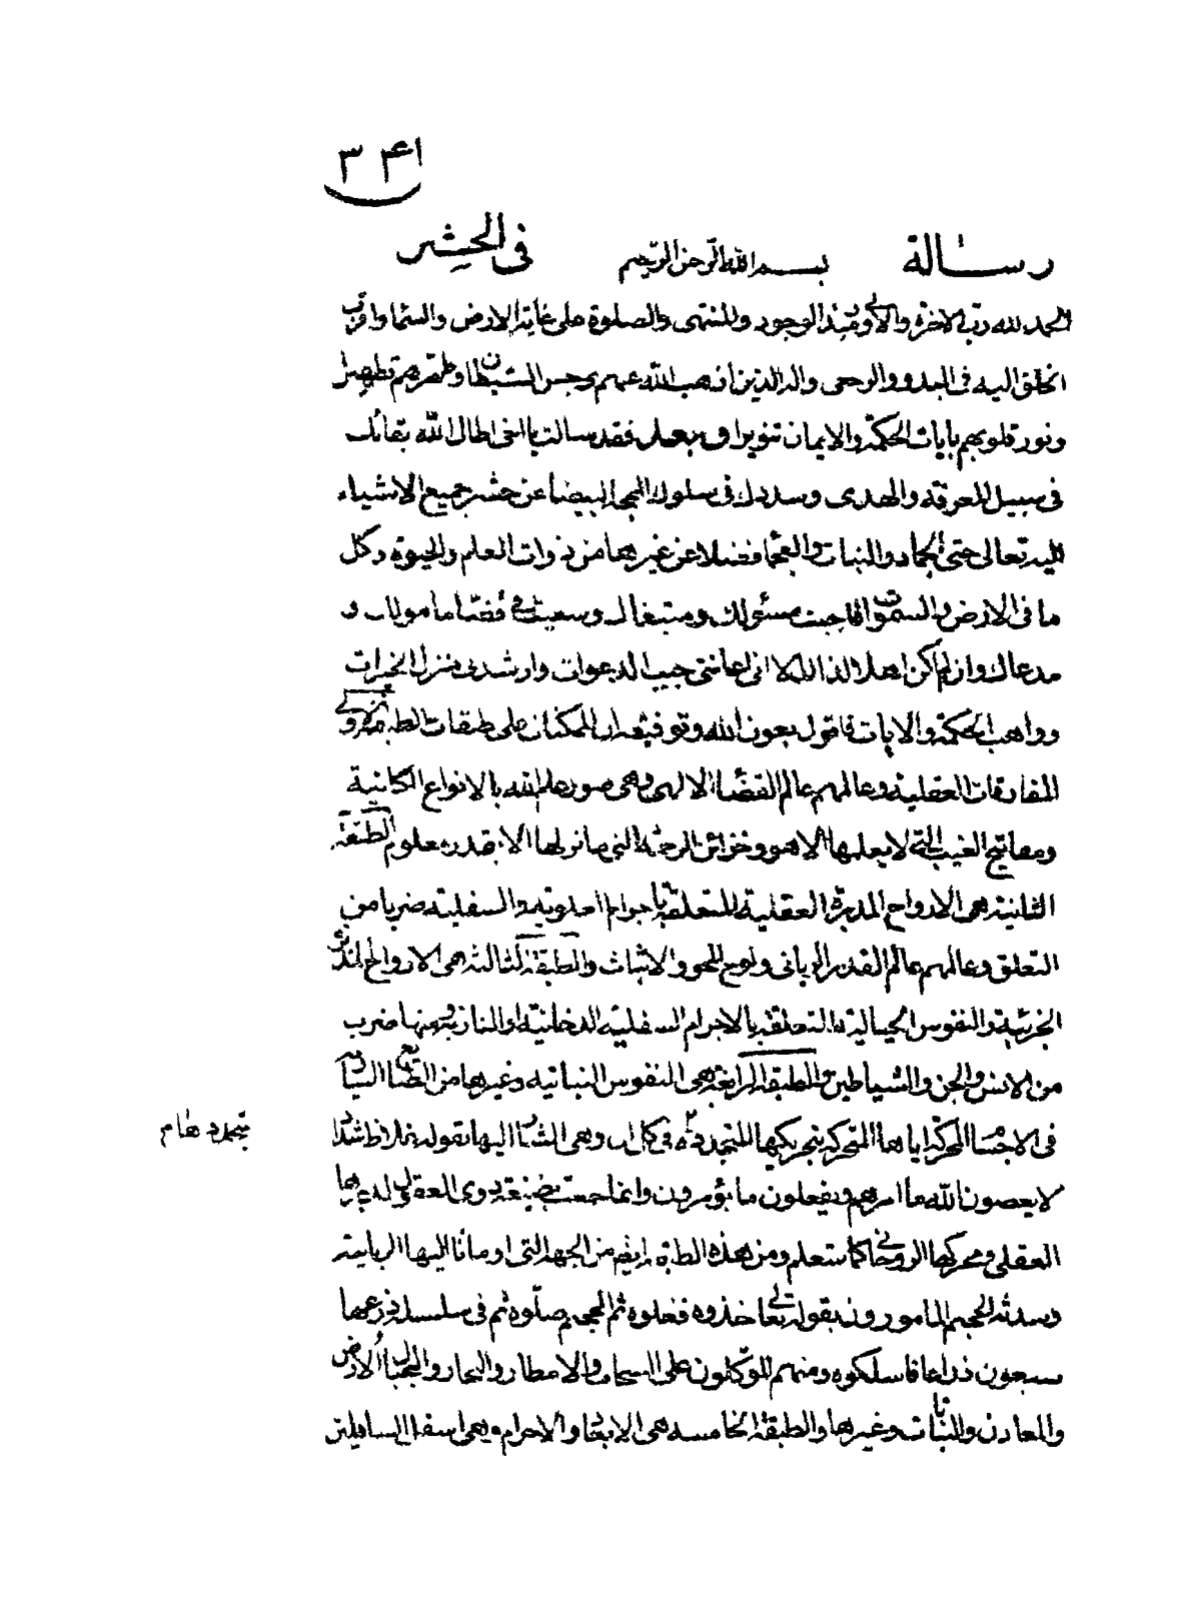 ٣٤١
رسالة بسم الله الرحمن الرحيم فى الحشر
الحمد لله رب الاخرة والاولى ومبدء الوجود والمنتهى والصلوة على غاية الارض والسماء واقرب
الخلق اليه فى البدو والرجعى واله الذين اذهب الله عنهم رجس الشيطان وطهرهم تطهيرا
ونور قلوبهم بايات الحكمة والايمان تنويرا وبعد فقد سالت يا اخى اطال الله بقائك
فى سبيل المعرفة والهدى وسددك فى سلوك المحجة البيضا عن حشر جميع الاشياء
اليه تعالى حتى الجماد والنبات والعجما فضلا عن غيرها من ذوات العلم والحيوة وكل
ما فى الارض والسموات فاجبت مسئولك ومبتغاك وسعيت فى قضا مامولك و
مدعاك وان لم اكن اهلا لذالك الا انى اعاننى مجيب الدعوات وارشدنى منزل الخيرات
وواهب الحكمة والايات فاقول بعون الله وتوفيقه ان الممكنات على طبقات الطبقة الاولى
المفارقات العقلية وعالمهم عالم القضا الالهى وهى صور علم الله بالانواع الكائنة
ومفاتيح الغيب التى لا يعلمها الا هو وخزائن الرحمة التى ما نزلها الا بقدر معلوم الطبقة
الثانية هى الارواح المدبرة العقلية المتعلقة باجرام العلوية والسفلية ضربا من
التعلق وعالمهم عالم القدر الربانى ولوح المحو والاثبات والطبقة الثالثة هى الارواح المدبرة
الجزئية والنفوس الخيالية المتعلقة بالاجرام السفلية الدخانية او النارية ومنها ضرب
من الانس والجن والشياطين والطبقة الرابعة هى النفوس النباتية وغيرها من الطبايع السارية
فى الاجسام المحركة اياها المتحركة بتحريكها المتجددة فى كل ان وهى المشار اليها بقوله غلاظ شداد
يتجددها م
لا يعصون الله ما امرهم ويفعلون ما يؤمرون وانما جمعت بصيغة ذوى العقول لمدبرها
العقلى ومحركها الروحانى كما ستعلم ومن هذه الطبقة ايضا من الجهة التى اومانا اليها الزبانية
وسدنة الجحيم المامورون بقوله تعالى خذوه فغلوه ثم الجحيم صلوه ثم فى سلسلة ذرعها
سبعون ذراعا فاسلكوه ومنهم الموكلون على السحاب والامطار والبحار والجبال والارض
والمعادن والنبات وغيرها والطبقة الخامسة هى الابعاد والاجرام وهى اسفل السافلين